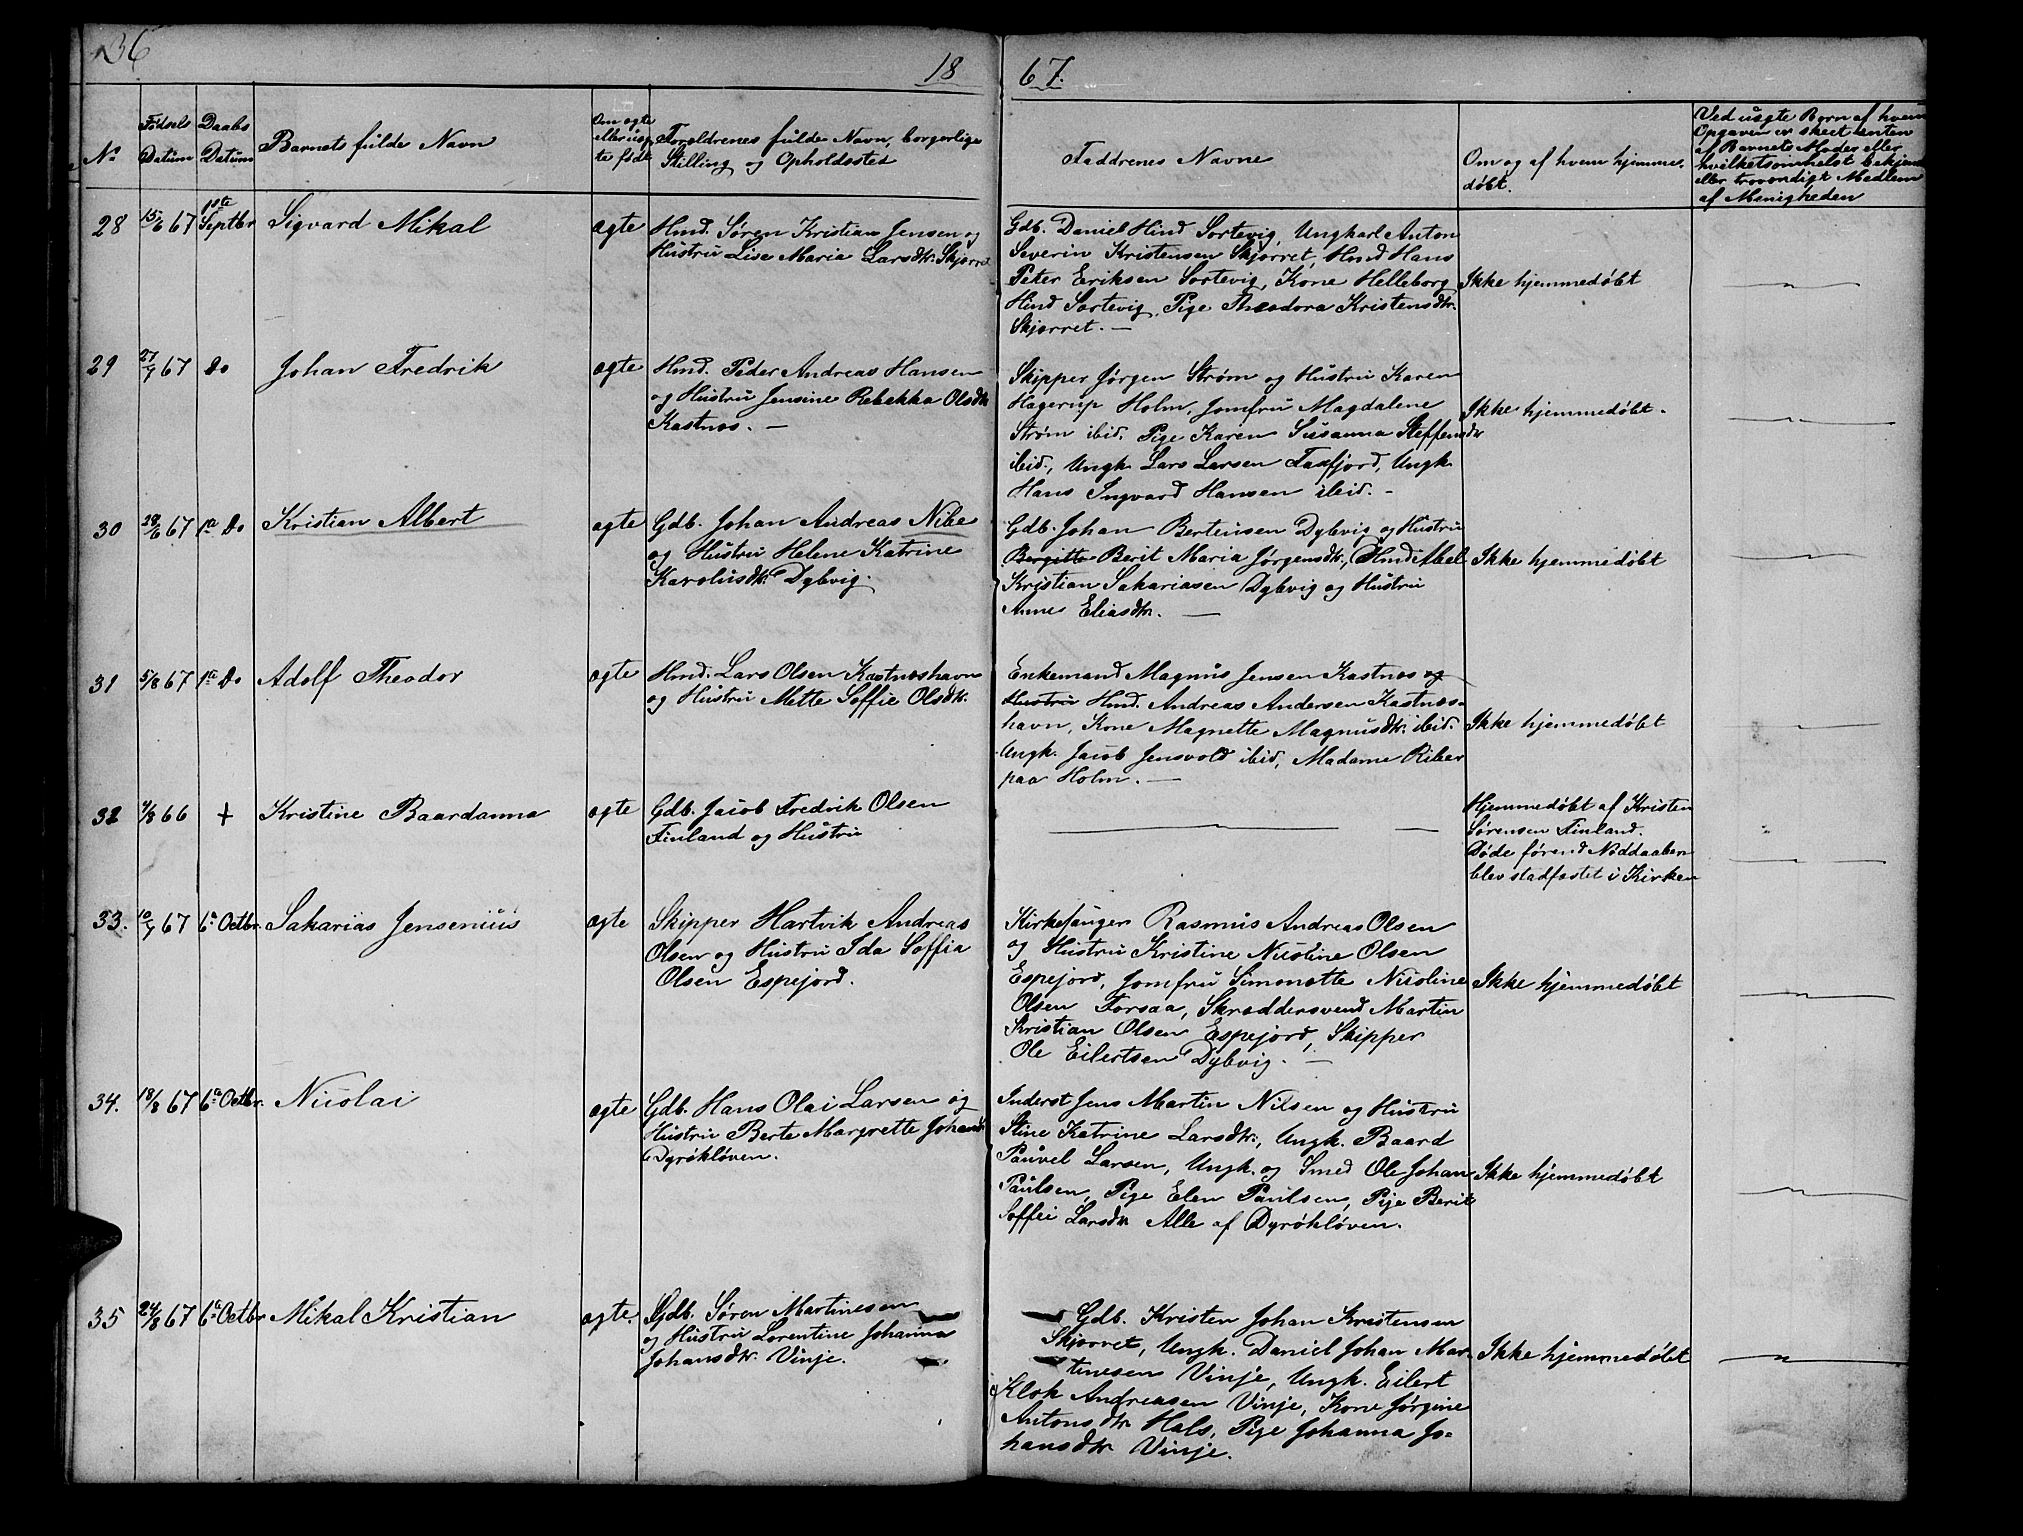 36
18
67.
No
Fødsels Datum
Daabs Datum
Barnets fulde Navn
Om ægte
eller uæg
te født
Foreldrenes fulde Navn, borgerlige
Stilling og Opholdssted
Faddrenes Navne
Om og af hvem hjemme-
døbt.
Ved uægte Børn af hvem
Opgaven er skeet enten
af Barnets Moder eller
hvilketsomhelst bekjendt
eller troværdigt Medlem
af Menigheden
28 15/6 67 1ste Septbr Sigvard Mikal ægte
Hmd. Søren Kristian Jensen og
Hustru Lise Maria Larsdtr. Skjærret
Gdb. Daniel Hind Sortevig, Ungkarl Anton
Severin Kristensen Skjærret, Hmd Hans
Peter Eriksen Sortevig, Kone Helleborg
Hind Sortevig, Pige Theodora Kristensdtr.
Skjærret. —
Ikke hjemmedøbt
29 27/7 67 Do Johan Fredrik ægte
Hmd. Peder Andreas Hansen
og Hustru Jensine Rebekka Olsdtr
Kastnæs. —
Skipper Jørgen Strøm og Hustru Karen
Hagerup Holm, Jomfru Magdalene
Strøm ibid. Pige Karen Susanna Steffensdtr
ibid., Ungk. Lars Larsen Faxfjord, Ungk.
Hans Ingvard Hansen ibid. -
Ikke hjemmedøbt.
30 28/6 67 1a Do Kristian Albert ægte
Gdb. Johan Andreas Nibe
og Hustru Helene Katrine
Karolusdtr. Dybvig.
Gdb. Johan Berteusen Dybvig og Hustru
Bergitte Berit Maria Jørgensdtr., Hmd Abel
Kristian Sakariasen Dybvig og Hustru
Anne Eliasdtr. —
Ikke hjemmedøbt
31 5/8 67 1a Do Adolf Theodor ægte
Hmd. Lars Olsen Kastnæshavn
og Hustru Mette Soffie Olsdtr.
Enkemand Magnus Jensen Kastnæs og
Hustru Hmd. Andreas Andersen Kastnæs-
havn, Kone Magnette Magnusdtr. ibid.
Ungk. Jacob Jensvold ibid, Madame Riber
paa Holm. —
Ikke hjemmedøbt
32 4/8 66 + Kristine Baardanna ægte
Gdb. Jacob Fredrik Olsen
Finland og Hustru
Hjemmedøbt af Kristen
Sørensen Finland.
Døde førend Nøddaaben
blev stadfæstet i Kirken
33. 10/7 67 6a Octbr. Sakarias Jensenius ægte
Skipper Hartvik Andreas
Olsen og Hustru Ida Soffia
Olsen Espejord.
Kirkesanger Rasmus Andreas Olsen
og Hustru Kristine Nicoline Olsen
Espejord, Jomfru Simonette Nicoline
Olsen Forsaa, Skræddersvend Martin
Kristian Olsen Espejord, Skipper
Ole Eilertsen Dybvig. —
Ikke hjemmedøbt
34. 18/8 67 6a Octbr. Nicolai ægte
Gdb. Hans Olai Larsen og
Hustru Berte Margrette Johansdtr
Dyrøkløven.
Inderst Jens Martin Nilsen og Hustru
Stine Katrine Larsdtr., Ungk. Baard
Pauvel Larsen, Ungk. og Smed Ole Johan
Paulsen, Pige Elen Paulsen, Pige Berit
Soffie Larsdtr Alle af Dyrøkløven.
Ikke hjemmedøbt
35 24/8 67 6a Octbr Mikal Kristian ægte.
Gdb. Søren Martinesen
og Hustru Lorentine Johanna
Johansdtr. Vinje.
Gdb. Kristen Johan Kristensen
Skjærret, Ungk. Daniel Johan Mar-
tinesen Vinje, Ungk. Eilert
Klok Andreasen Vinje, Kone Jørgine
Antonsdtr Hals, Pige Johanna Jo-
hansdtr Vinje.
Ikke hjemmedøbt